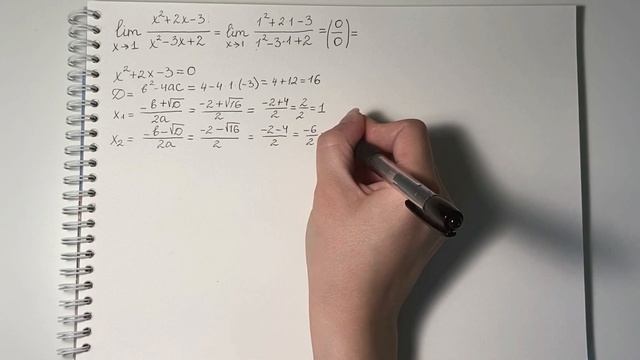 lim x→1 (x²+2x-3)/(x²-3x+2) = lim x→1 (1²+2·1-3)/(1²-3·1+2) = (0/0) =
x²+2x-3=0
D = b²-4ac = 4-4·1·(-3) = 4+12 = 16
x₁ = (-b+√D)/2a = (-2+√16)/2 = (-2+4)/2 = 2/2 = 1
x₂ = (-b-√D)/2a = (-2-√16)/2 = (-2-4)/2 = -6/2